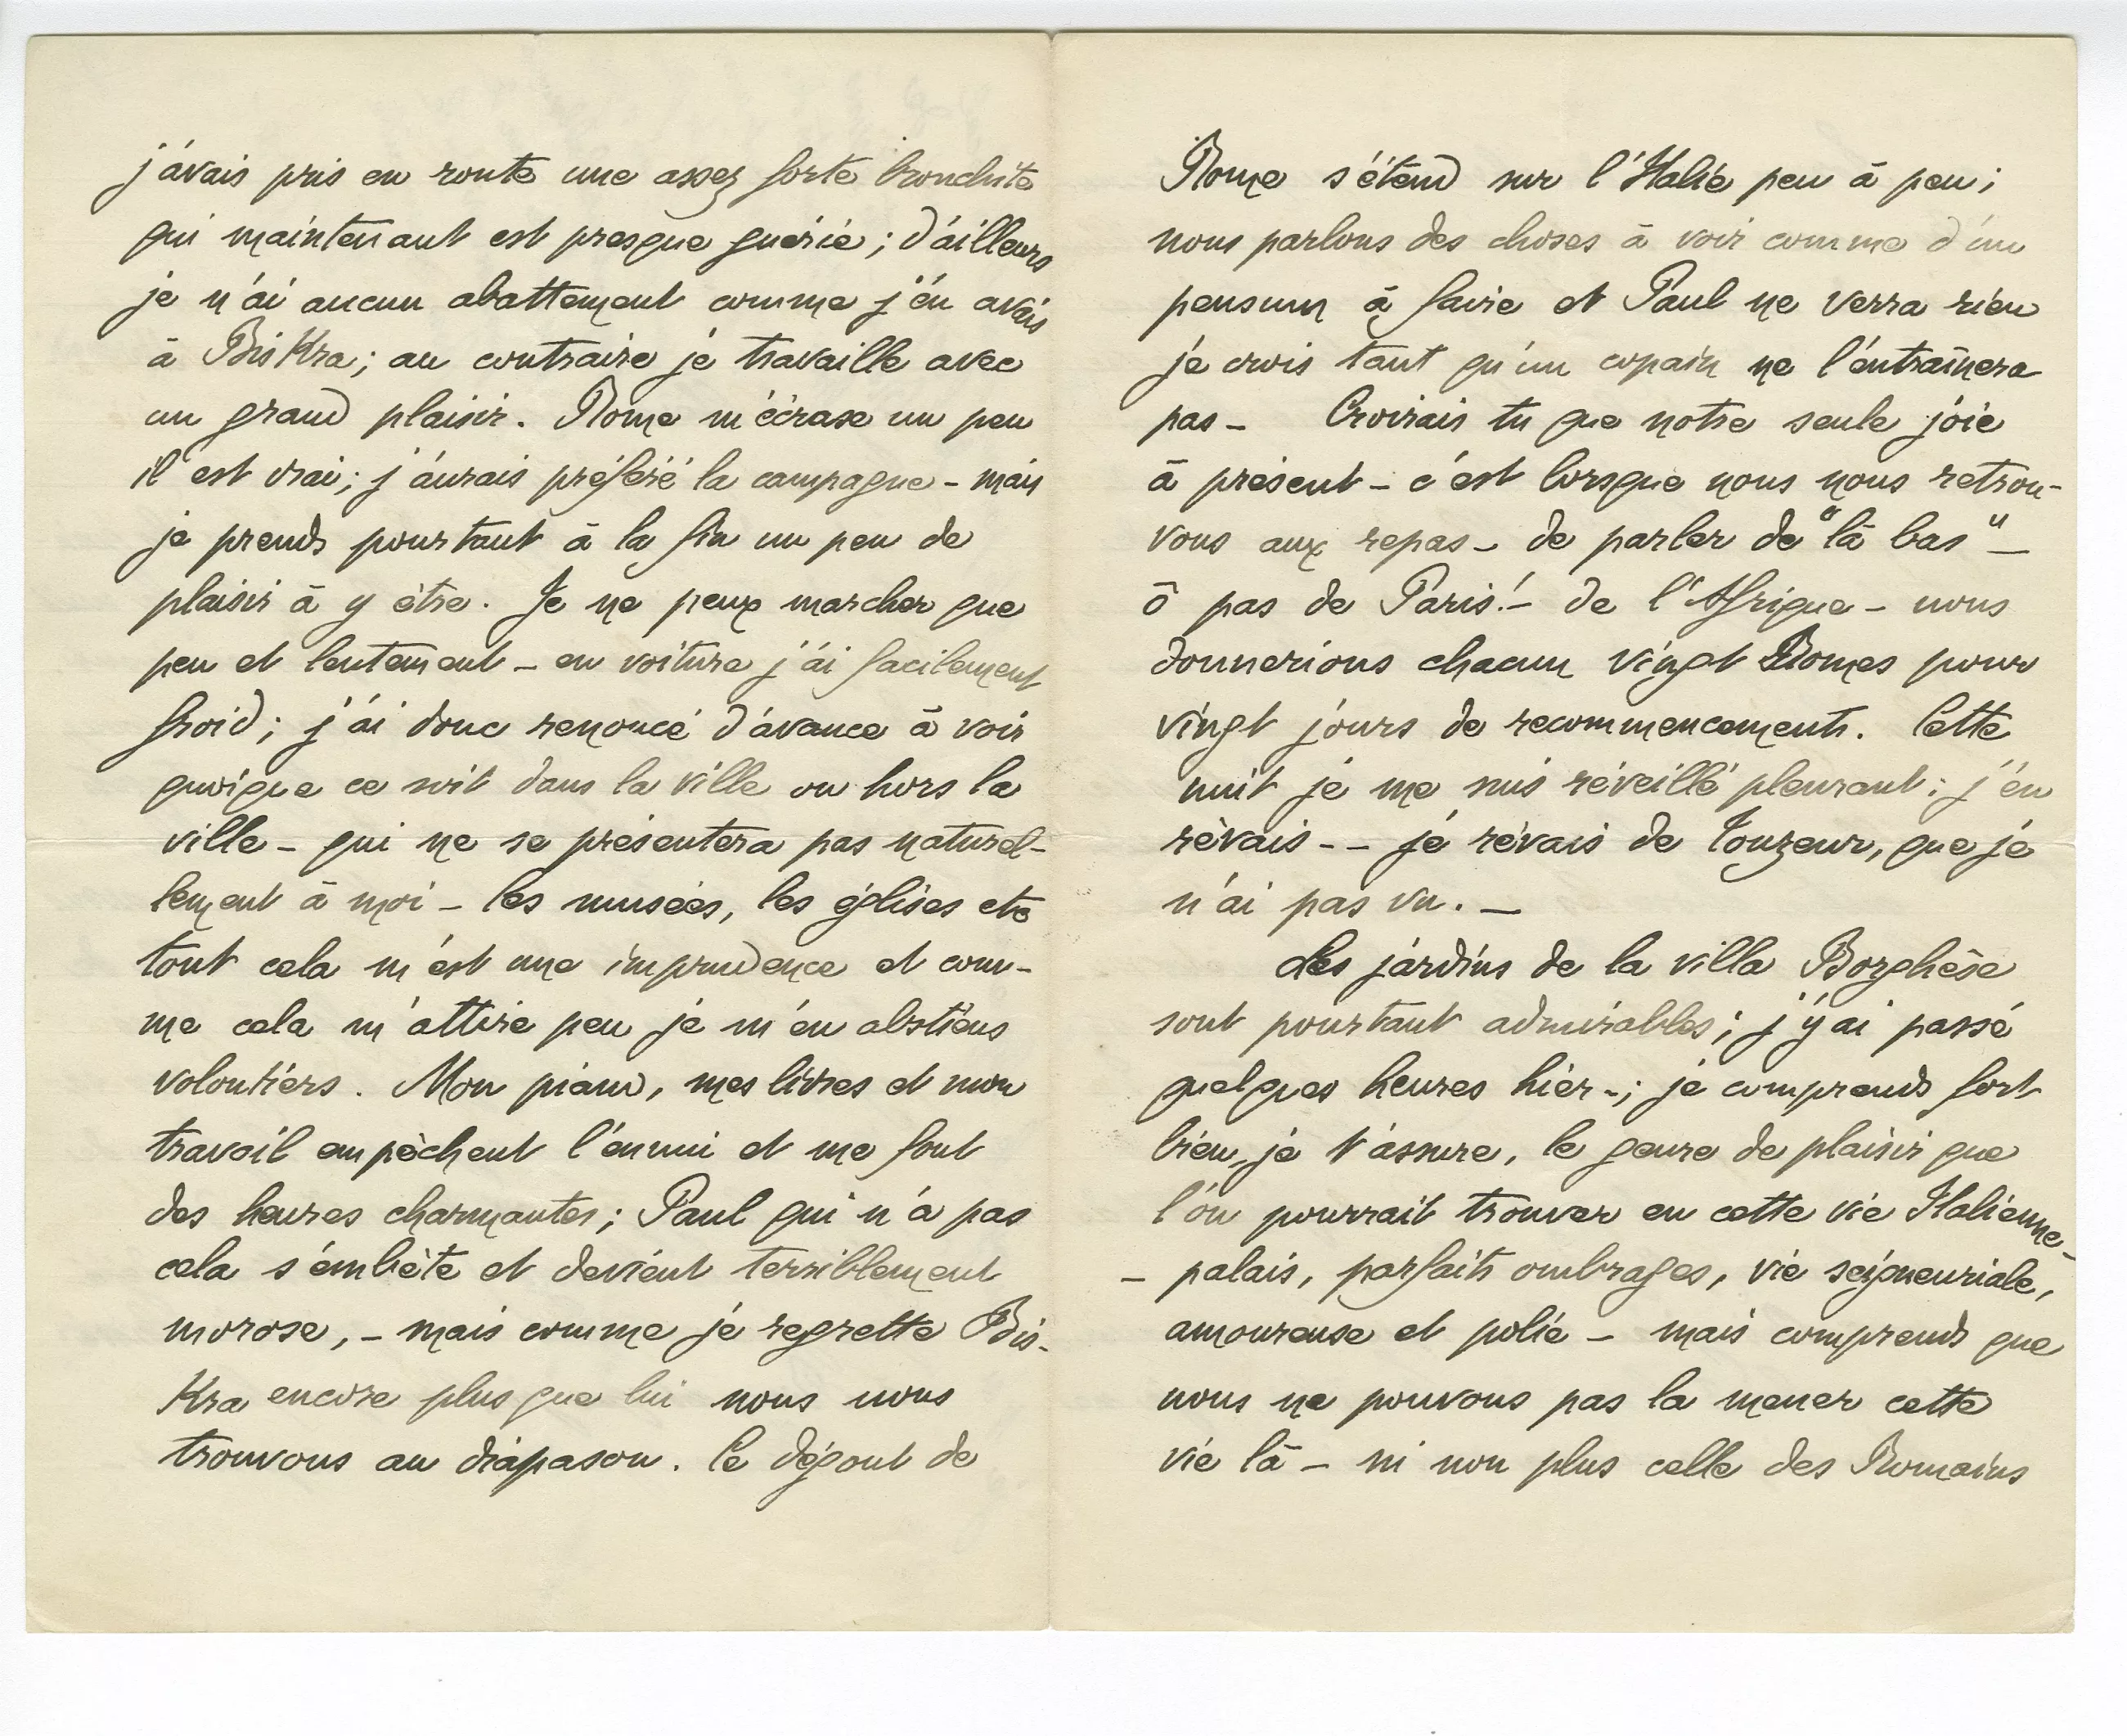 j'avais pris en route une assez forte bronchite
qui maintenant est presque guérie ; d'ailleurs
je n'ai aucun abattement comme j'en avais
à BisKra ; au contraire je travaille avec
un grand plaisir. Rome m'écrase un peu
il est vrai ; j'aurais préféré la campagne - mais
je prends pourtant à la fin un peu de
plaisir à y être. Je ne peux marcher que
peu et lentement - en voiture j'ai facilement
froid ; j'ai donc renoncé d'avance à voir
quoique ce soit dans la ville ou hors la
ville - qui ne se présentera pas naturel-
lement à moi - les musées, les églises etc
tout cela m'est une imprudence et com-
me cela m'attire peu je m'en abstiens
volontiers. Mon piano, mes livres et mon
travail empêchent l'ennui et me font
des heures charmantes ; Paul qui n'a pas
cela s'embête et devient terriblement
morose, - mais comme je regrette Bis-
Kra encore plus que lui nous nous
trouvons au diapason. Le dégout de
Rome s'étend sur l'Italie peu à peu ;
nous parlons des choses à voir comme d'un
pensum à faire et Paul ne verra rien
je crois tant qu'un copain ne l'entraînera
pas - Croirais tu que notre seule joie
à présent - c'est lorsque nous nous retrou-
vons aux repas - de parler de "là bas" -
ô pas de Paris ! - de l'Afrique - nous
donnerions chacun vingt Romes pour
vingt jours de recommencements. Cette
nuit je me suis réveillé pleurant : j'en
rêvais - - je rêvais de Touzeur, que je
n'ai pas vu. -
Les jardins de la villa Borghèse
sont pourtant admirables ; j'y ai passé
quelques heures hier - ; je comprends fort
bien, je t'assure, le genre de plaisir que
l'on pourrait trouver en cette vie Italienne -
- palais, parfaits ombrages, vie seigneuriale,
amoureuse et polie - mais comprends que
nous ne pouvons pas la mener cette
vie là - ni non plus celle des Romains